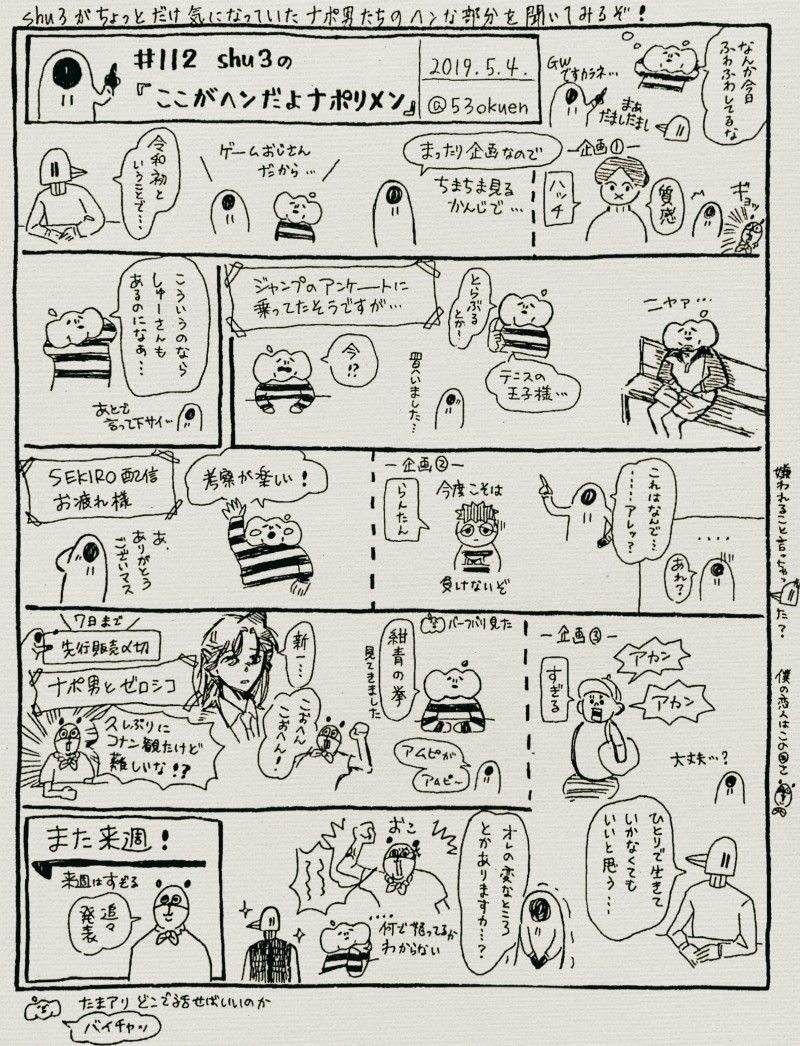 shu3がちょっとだけ気になっていたナポ男たちのヘンな部分を聞いてみるぞ!
#112 shu3の
『ここがヘンだよナポリメン』
2019.5.4.
@53okuen
なんか今日
ふわふわしてるな
GW
ですカラネ…
まあ
だましだまし
令和初と
いうことで…
ゲームおじさん
だから…
まったり企画なので
ちまちま見る
かんじで…
―企画①―
ハッチ
質感
ギョッ
こういうのなら
しゅーさんも
あるのになぁ…
あとで
言って下サイ…
ジャンプのアンケートに
乗ってたそうですが…
今!?
とらぶる
とか!
テニスの
王子様…
皆へいました…
ニャァ…
SEKIRO配信
お疲れ様
あ、
ありがとう
ございマス
考察が楽しい!
―企画②―
らんたん
今度こそは
負けないぞ
これはなんで…
……アレッ?
・・・・
あれ?
嫌われること言っちゃった?
僕の恋人はこの四で
7日まで
先行販売〆切
ナポ男とゼロシコ
久しぶりに
コナン観たけど
難しいな!?
新一…
こおへん
こおへん!
バーフバリ見た
紺青の拳
見てきました
アムピが
アムピ〜
―企画③―
すぎる
アカン
アカン
大丈夫…?
ひとりで生きて
いかなくても
いいと思う…
オレの変なところ
とかありますカ…?
おこ
・・・・
何で怒ってるか
わからない
また来週!
来週はすぎる
追々
発表
たまアリ どこで話せばいいのか
バイチャッ